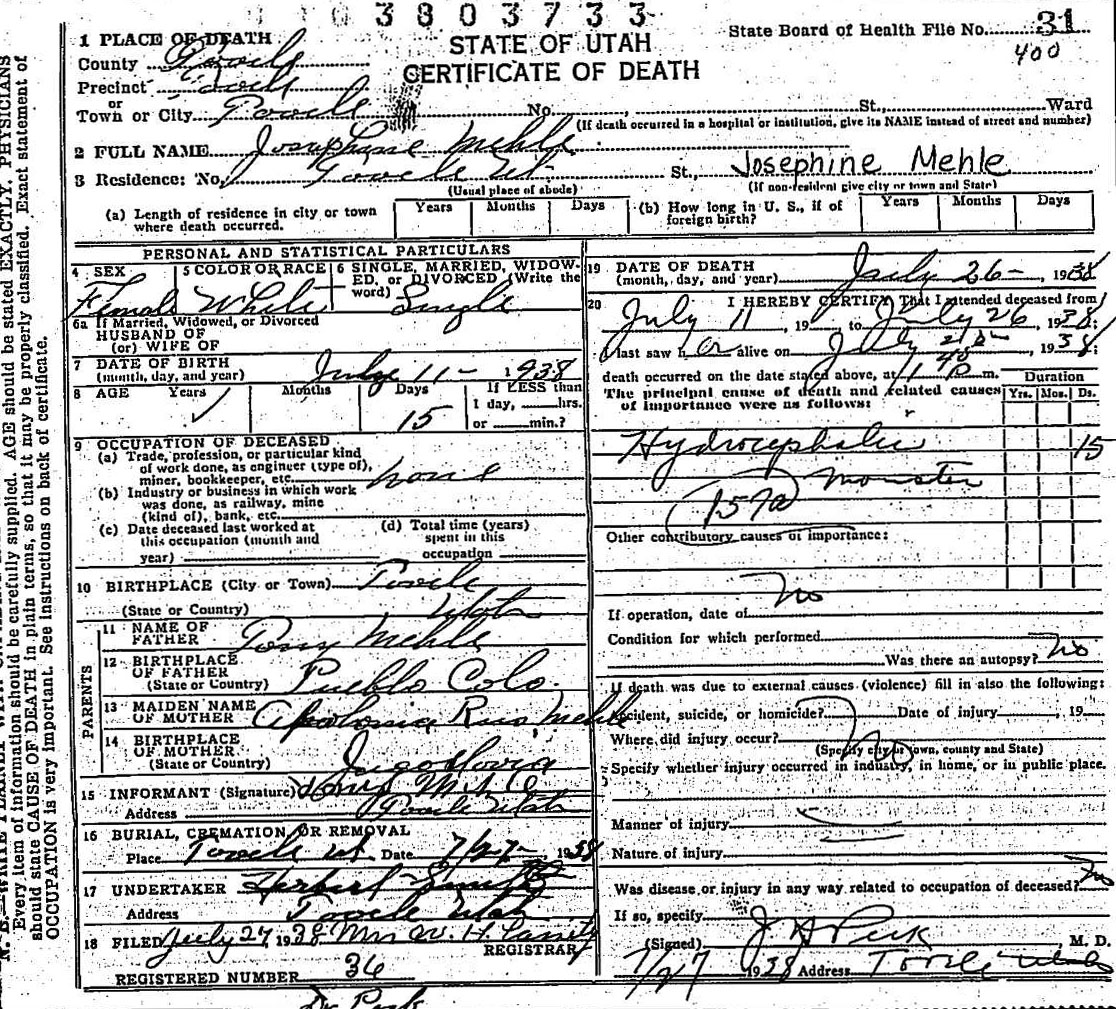 3803733
State Board of Health File No. 31
400
STATE OF UTAH
CERTIFICATE OF DEATH
1 PLACE OF DEATH
County Tooele
Precinct Tooele
or
Town or City Tooele No. St., Ward
(If death occurred in a hospital or institution, give its NAME instead of street and number)
2 FULL NAME Josephine Mehle
3 Residence: No. Tooele Ut St., Josephine Mehle
(Usual place of abode) (If non-resident give city or town and State)
(a) Length of residence in city or town where death occurred. Years Months Days
(b) How long in U. S., if of foreign birth? Years Months Days
PERSONAL AND STATISTICAL PARTICULARS
4 SEX Female
5 COLOR OR RACE White
6 SINGLE, MARRIED, WIDOWED, or DIVORCED (Write the word) Single
6a If Married, Widowed, or Divorced
HUSBAND OF
(or) WIFE OF
7 DATE OF BIRTH
(month, day, and year) July 11 - 1938
8 AGE Years Months Days If LESS than
15 1 day, hrs.
or min.?
9 OCCUPATION OF DECEASED
(a) Trade, profession, or particular kind
of work done, as engineer (type of),
miner, bookkeeper, etc. none
(b) Industry or business in which work
was done, as railway, mine
(kind of), bank, etc.
(c) Date deceased last worked at
this occupation (month and
year)
(d) Total time (years)
spent in this
occupation
10 BIRTHPLACE (City or Town) Tooele
(State or Country) Utah
PARENTS
11 NAME OF
FATHER Tony Mehle
12 BIRTHPLACE
OF FATHER
(State or Country) Pueblo Colo.
13 MAIDEN NAME
OF MOTHER Apolonia Rus Mehle
14 BIRTHPLACE
OF MOTHER
(State or Country) Jugoslovia
15 INFORMANT (Signature)
Address Tooele Utah
16 BURIAL, CREMATION, OR REMOVAL
Place Tooele Ut. Date 7/27- 1938
17 UNDERTAKER Herbert
Address Tooele Utah
18 FILED July 27 1938 Mrs W. H.
REGISTRAR
REGISTERED NUMBER 36
Dr Peck
19 DATE OF DEATH
(month, day, and year) July 26 - 1938
20 I HEREBY CERTIFY, That I attended deceased from
July 11, 19 to July 26 1938;
I last saw her alive on July 1938;
death occurred on the date stated above, at m.
The principal cause of death and related causes
of importance were as follows:
Duration
Yrs. Mos. Ds.
Hydrocephalic 15
monster
157a
Other contributory causes of importance:
If operation, date of No
Condition for which performed
Was there an autopsy? No
If death was due to external causes (violence) fill in also the following:
Accident, suicide, or homicide? Date of injury , 19
Where did injury occur? No
(Specify city or town, county and State)
Specify whether injury occurred in industry, in home, or in public place.
Manner of injury
Nature of injury
Was disease or injury in any way related to occupation of deceased? No
If so, specify
(Signed) J H Peck, M. D.
7/27 1938 Address Tooele Utah
Every item of information should be carefully supplied. AGE should be stated EXACTLY. PHYSICIANS
should state CAUSE OF DEATH in plain terms, so that it may be properly classified. Exact statement of
OCCUPATION is very important. See instructions on back of certificate.